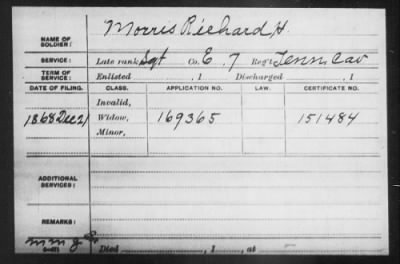 NAME OF SOLDIER: Morris Richard H.
SERVICE: Late rank Sgt Co. E. 7 Reg't Tenn Cav
TERM OF SERVICE: Enlisted , 1 Discharged , 1
DATE OF FILING. CLASS. APPLICATION NO. LAW. CERTIFICATE NO.
Invalid,
1868 Dec 21 Widow, 169365 151484
Minor,
ADDITIONAL SERVICES:
REMARKS:
Died , 1 , at